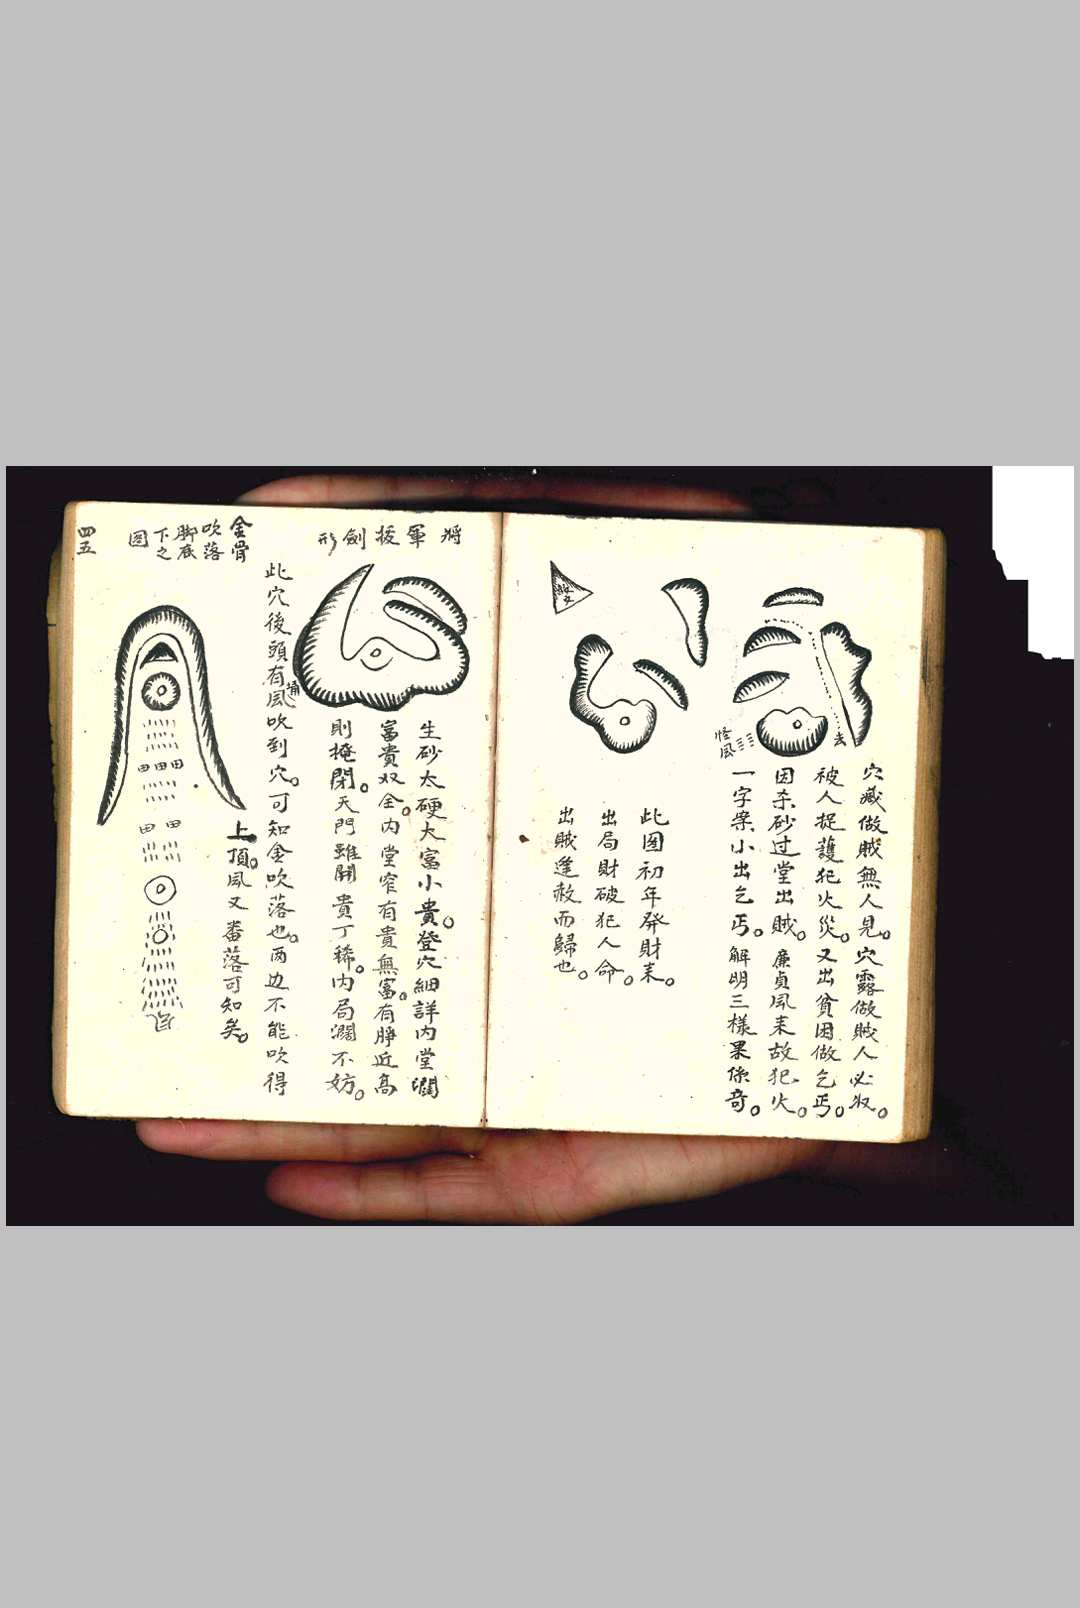 穴藏做賊無人見。穴露做賊人必收。
被人捉護犯火災。又出貧困做乞丐。
因杀砂过堂出賊。廉貞風来故犯火。
一字案小出乞丐。解明三樣果係奇。
去
怪風
此图初年發財来。
出局財破犯人命。
出賊逢赦而歸也。
赦文
將軍拔劍形
生砂太硬大富小貴。登穴細詳內堂濶
富貴双全。內堂窄有貴無富。有脝近高
則掩閉。天門雖開貴丁稀。內局濶不妨。
此穴後頭有風吹到穴。可知金吹落也。两边不能吹得
上。頂風又番落可知矣。
金骨
吹落
脚底
下之
图
四五